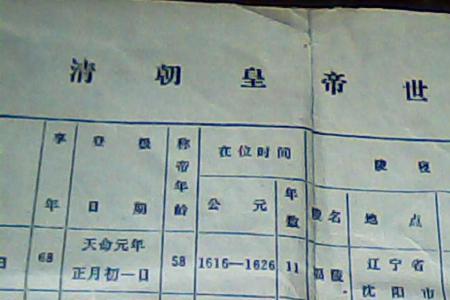 清朝皇帝世
享年 登极日期 称帝年龄 在位时间 陵寝
公元 年数 陵名 地点
日 68 天命元年 58 1616—1626 11 福陵 辽宁省
正月初一日 沈阳市